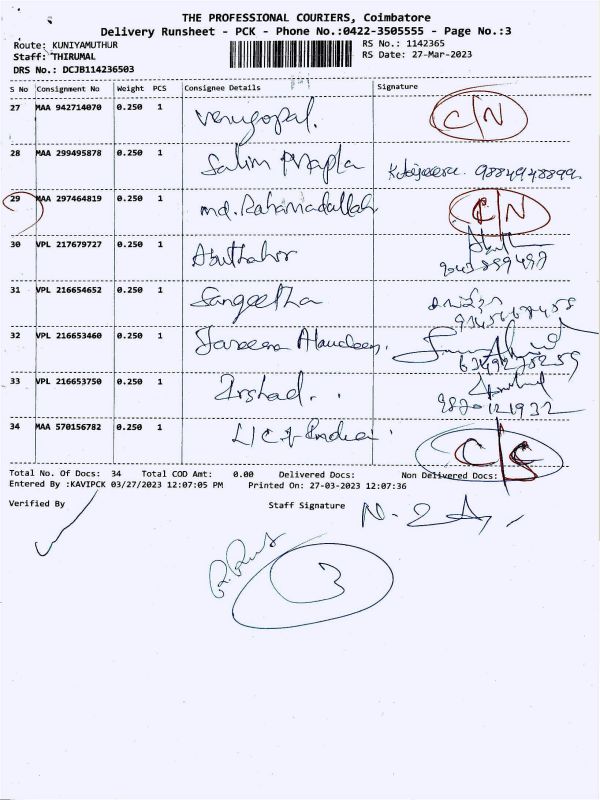 THE PROFESSIONAL COURIERS, Coimbatore
Delivery Runsheet - PCK - Phone No.:0422-3505555 - Page No.:3
Route: KUNIYAMUTHUR RS No.: 1142365
Staff: THIRUMAL RS Date: 27-Mar-2023
DRS No.: DCJB114236503
S No Consignment No Weight PCS Consignee Details Signature
27 MAA 942714070 0.250 1 Venugopal. C/N
28 MAA 299495878 0.250 1 Salim
29 MAA 297464819 0.250 1 md. Rahamadallah C/N
30 VPL 217679727 0.250 1 Abuthahir
31 VPL 216654652 0.250 1 Sangeetha
32 VPL 216653460 0.250 1 Alaudeen.
33 VPL 216653750 0.250 1 Irshad..
34 MAA 570156782 0.250 1 LIC of India
Total No. Of Docs: 34 Total COD Amt: 0.00 Delivered Docs: Non Delivered Docs:
Entered By :KAVIPCK 03/27/2023 12:07:05 PM Printed On: 27-03-2023 12:07:36
Verified By Staff Signature
3